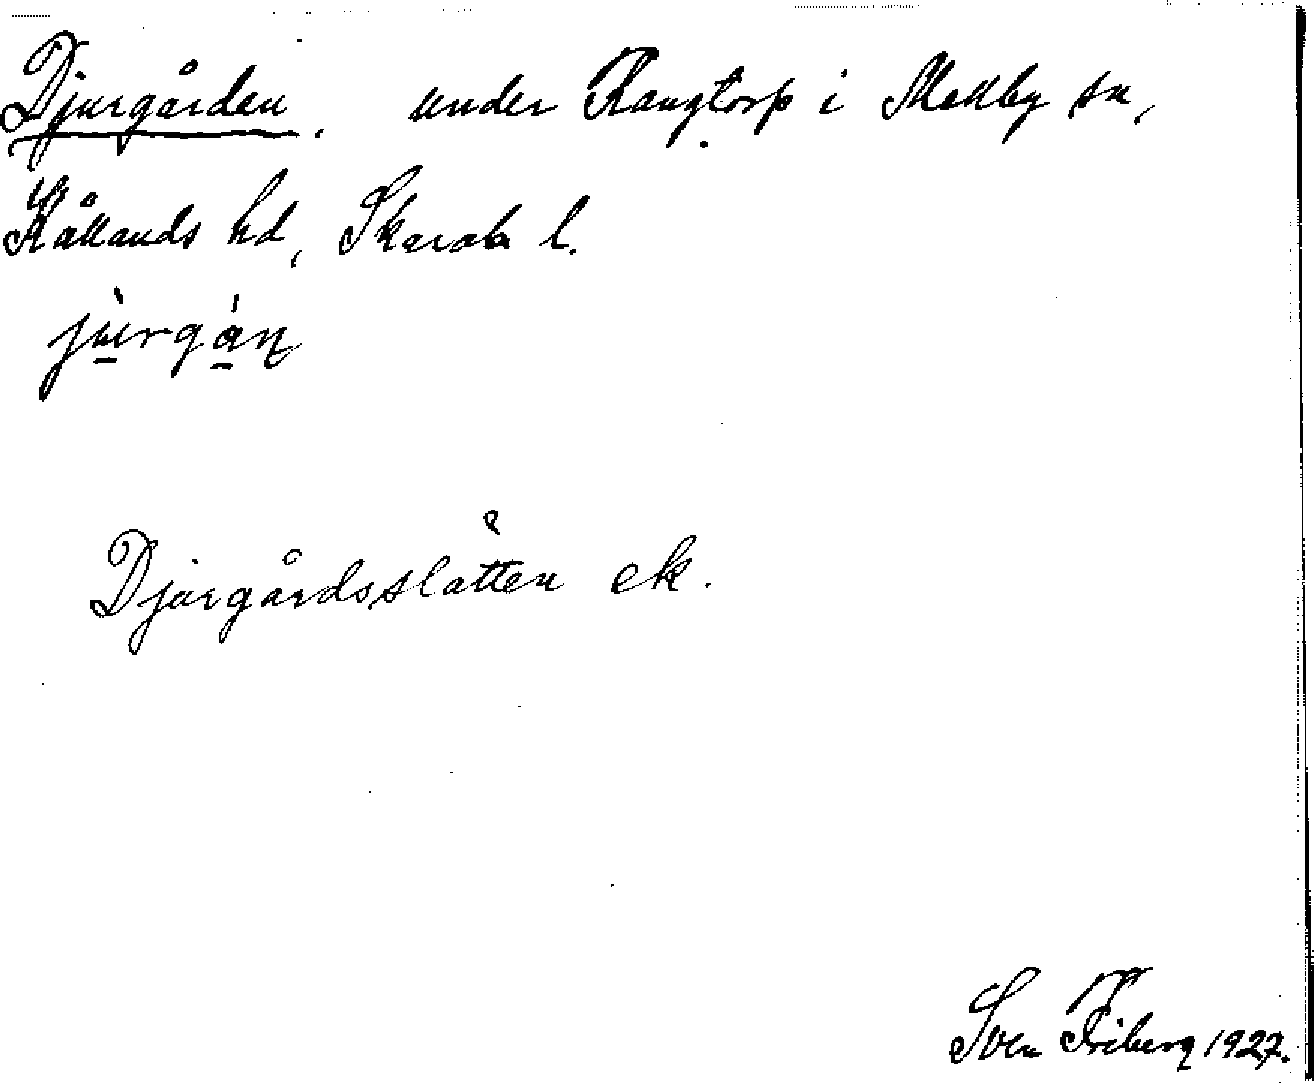 Djurgården. under Rangtorp i Mellby sn,
Kållands hd, Skarab. l.
jùrgán
Djurgårdsslåtten ek.
Sven Friberg 1927.